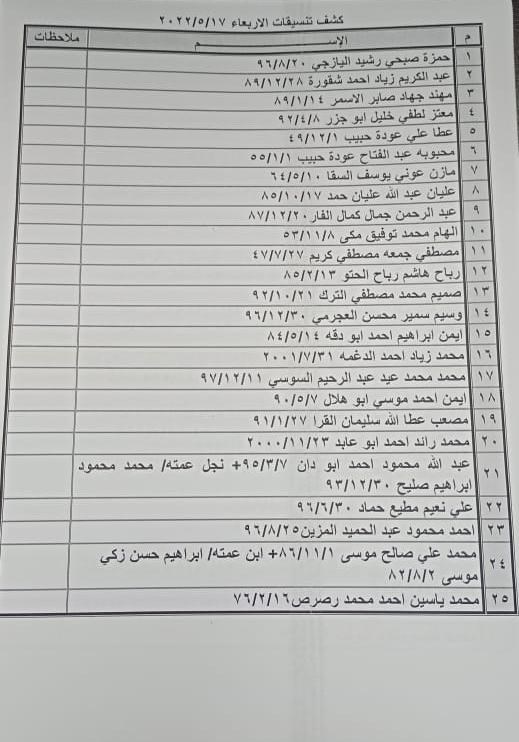 كشف تنسيقات الاربعاء ٢٠٢٢/٥/١٧
م الإســـــم ملاحظات
١ حمزة صبحي رشيد اليازجي ٩٦/٨/٢٠
٢ عبد الكريم زياد احمد شقورة ٨٩/١٢/٢٨
٣ مهند جهاد صابر الاسمر ٨٩/١/١٤
٤ معتز لطفي خليل ابو جزر ٩٢/٤/٨
٥ عطا علي عودة حبيب ٤٩/١٢/١
٦ محبوبه عبد الفتاح عودة حبيب ٥٥/١/١
٧ مازن عوني يوسف السقا ٦٤/٥/١٠
٨ عليان عبد الله عليان حمد ٨٥/١٠/١٧
٩ عبد الرحمن جمال كمال الفار ٨٧/١٢/٢٠
١٠ الهام محمد توفيق مكي ٥٣/١١/٨
١١ مصطفي جمعه مصطفي كريم ٤٧/٧/٢٧
١٢ رباح هاشم رباح الحتو ٨٥/٢/١٣
١٣ صميم محمد مصطفي الترك ٩٢/١٠/٢١
١٤ وسيم سمير محسن العجرمي ٩٦/١٢/٣٠
١٥ ايمن ابراهيم احمد ابو دقه ٨٤/٥/١٤
١٦ محمد زياد احمد الدغمه ٢٠٠١/٧/٣١
١٧ محمد محمد عيد عبد الرحيم السوسي ٩٧/١٢/١١
١٨ ايمن احمد موسي ابو هلال ٩٠/٥/٧
١٩ مصعب عطا الله سليمان القرا ٩١/١/٢٧
٢٠ محمد رائد احمد ابو عابد ٢٠٠٠/١١/٢٣
٢١ عبد الله محمود احمد ابو دان ٩٥/٣/٧+ نجل عمته/ محمد محمود
ابراهيم صليح ٩٣/١٢/٣٠
٢٢ علي نعيم مطيع حماد ٩٦/٦/٣٠
٢٣ احمد محمود عبد الحميد المزين٩٦/٨/٢٥
٢٤ محمد علي صالح موسى ٨٦/١١/١+ ابن عمته/ ابراهيم حسن زكي
موسى ٨٢/٨/٢
٢٥ محمد ياسين احمد محمد رصرص٧٦/٢/١٦